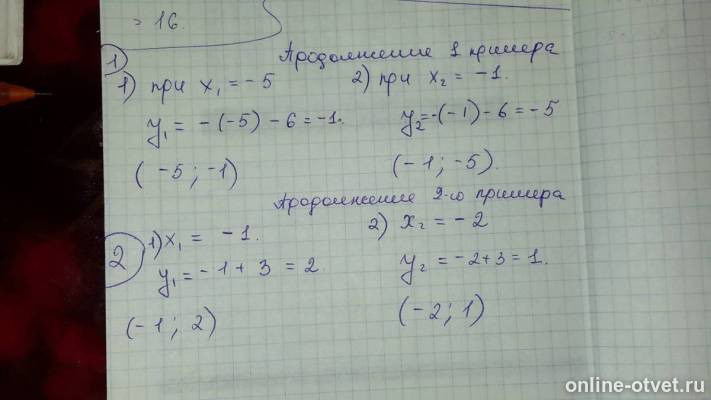 = 16.
1
Продолжение 1 примера
1) при x₁ = -5
2) при x₂ = -1.
y₁ = -(-5) - 6 = -1.
y₂ = -(-1) - 6 = -5
(-5; -1)
(-1; -5).
Продолжение 2-го примера
2
1) x₁ = -1.
2) x₂ = -2
y₁ = -1 + 3 = 2.
y₂ = -2 + 3 = 1.
(-1; 2)
(-2; 1)
online-otvet.ru